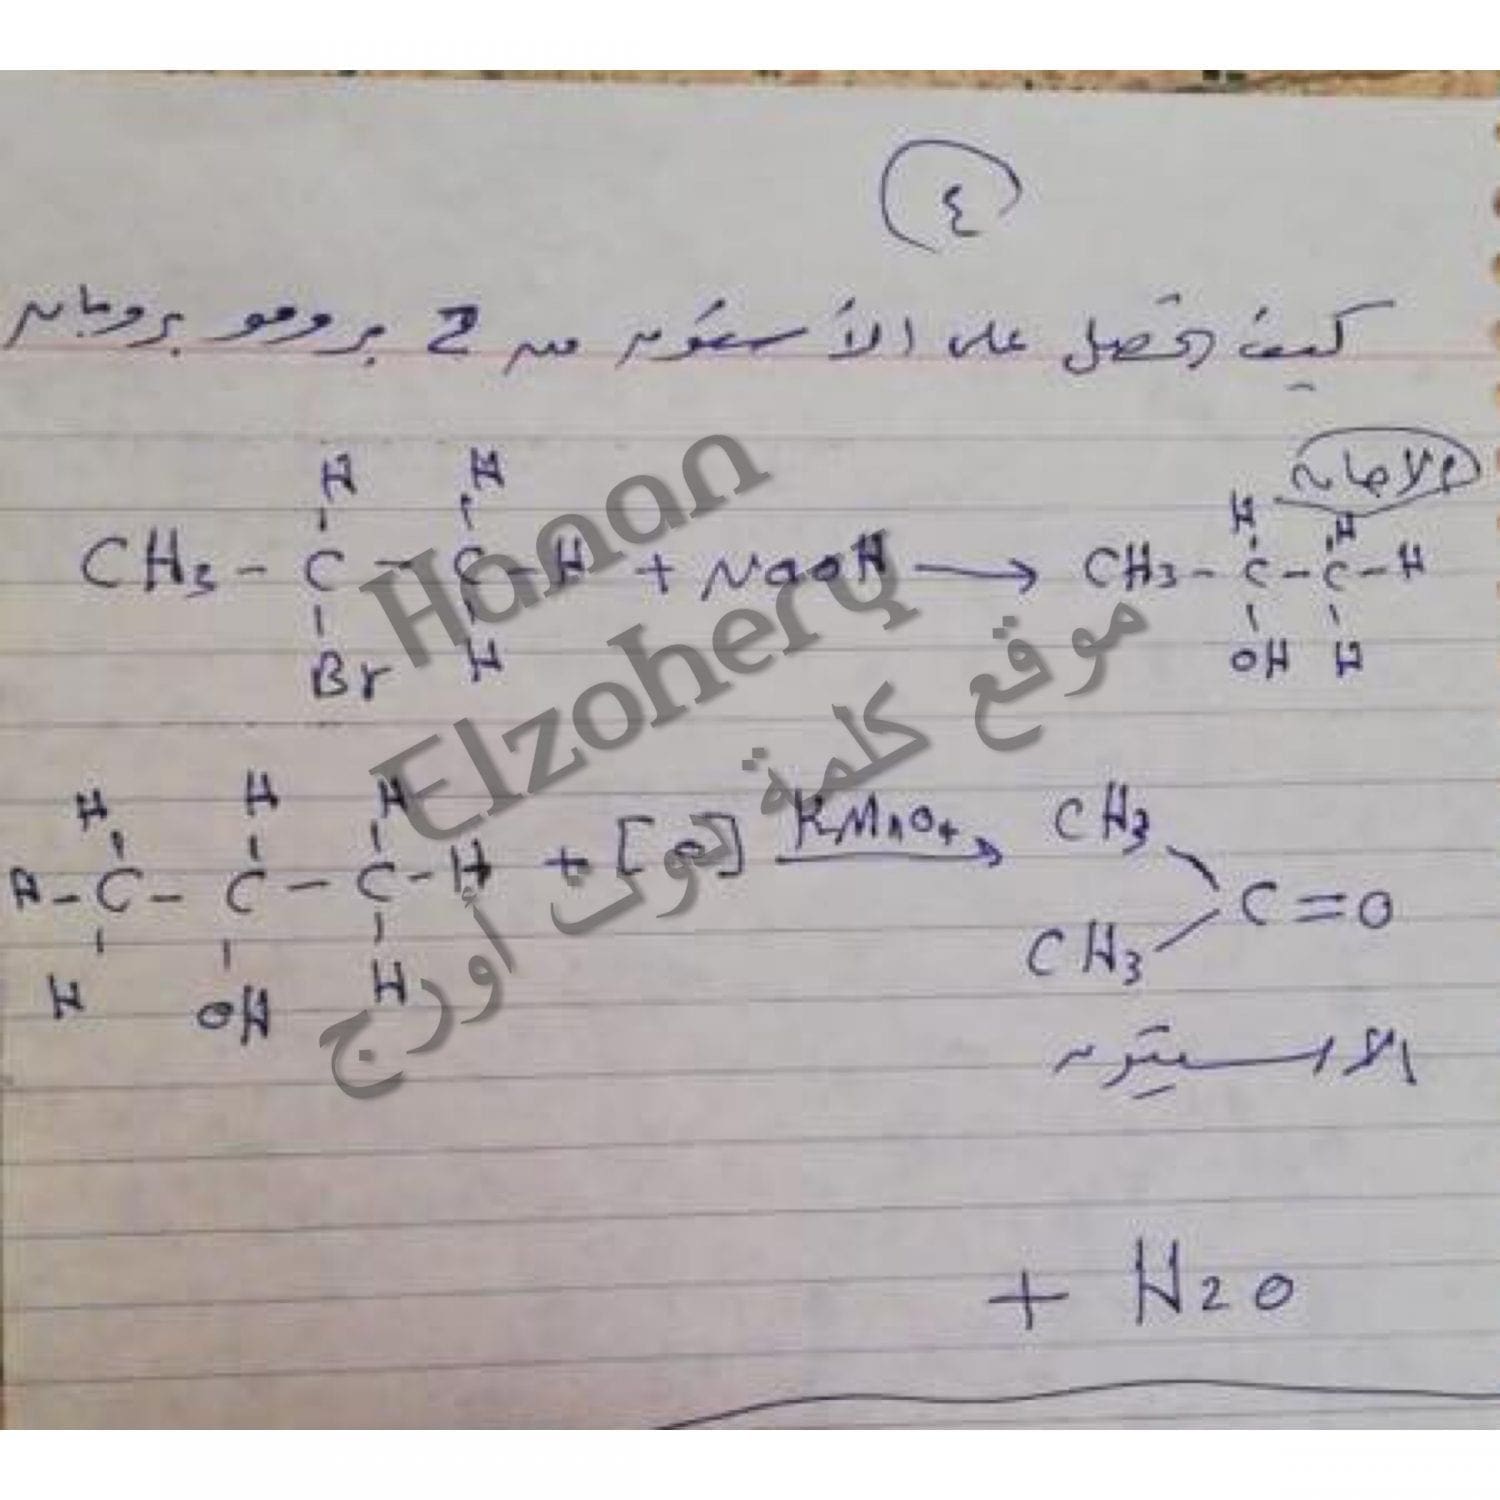 ٤
كيف تحصل على الأسيتون من 2 برومو بروبان
الاجابة
H H H H
CH3 - C - C - H + NaOH → CH3 - C - C - H
Br H OH H
H H H
H - C - C - C - H + [O] KMnO4 → CH3 CH3 C = O
H OH H
الاسيتون
+ H2O
Hanan
Elzohery
موقع كلمة دوت أورج